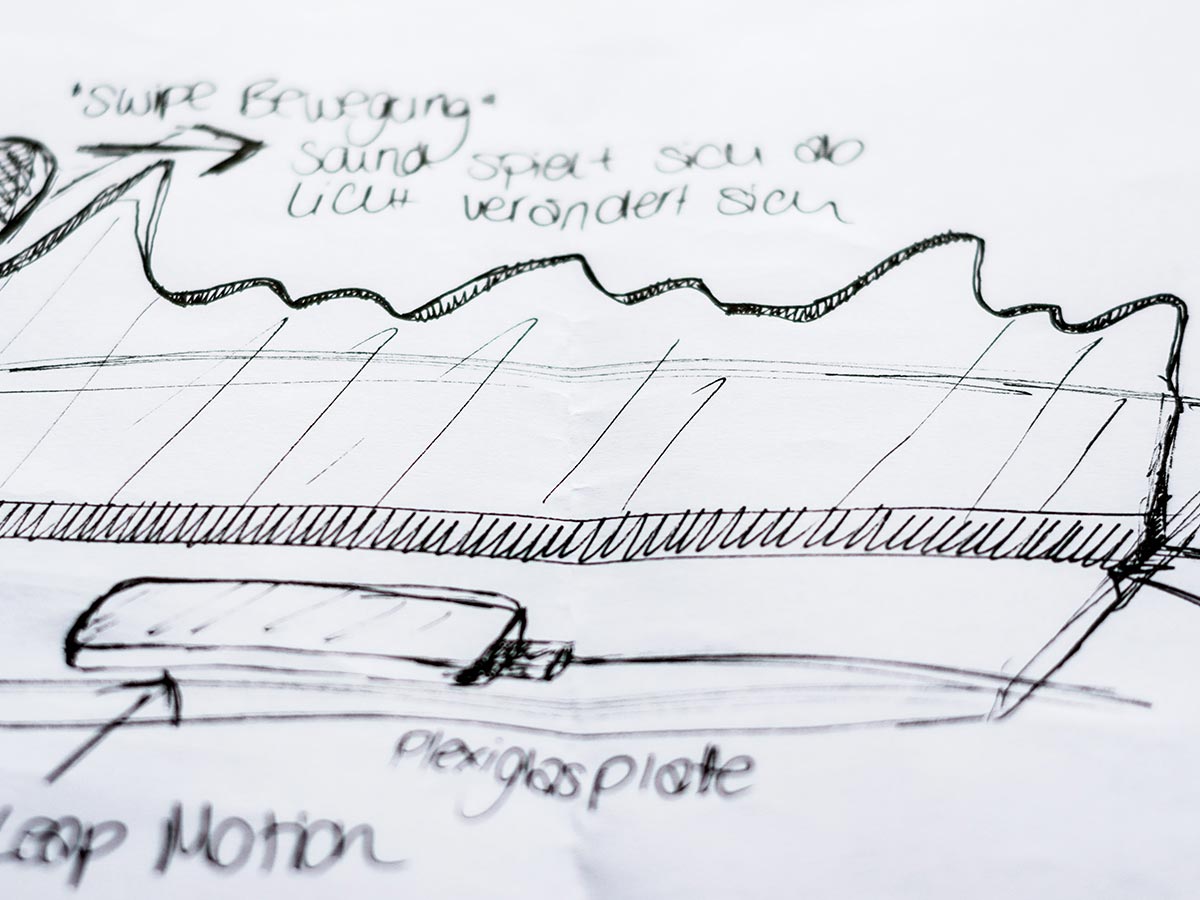 "Swipe Bewegung"
Sound spielt sich ab
Licht verändert sich
Plexiglasplatte
Leap Motion